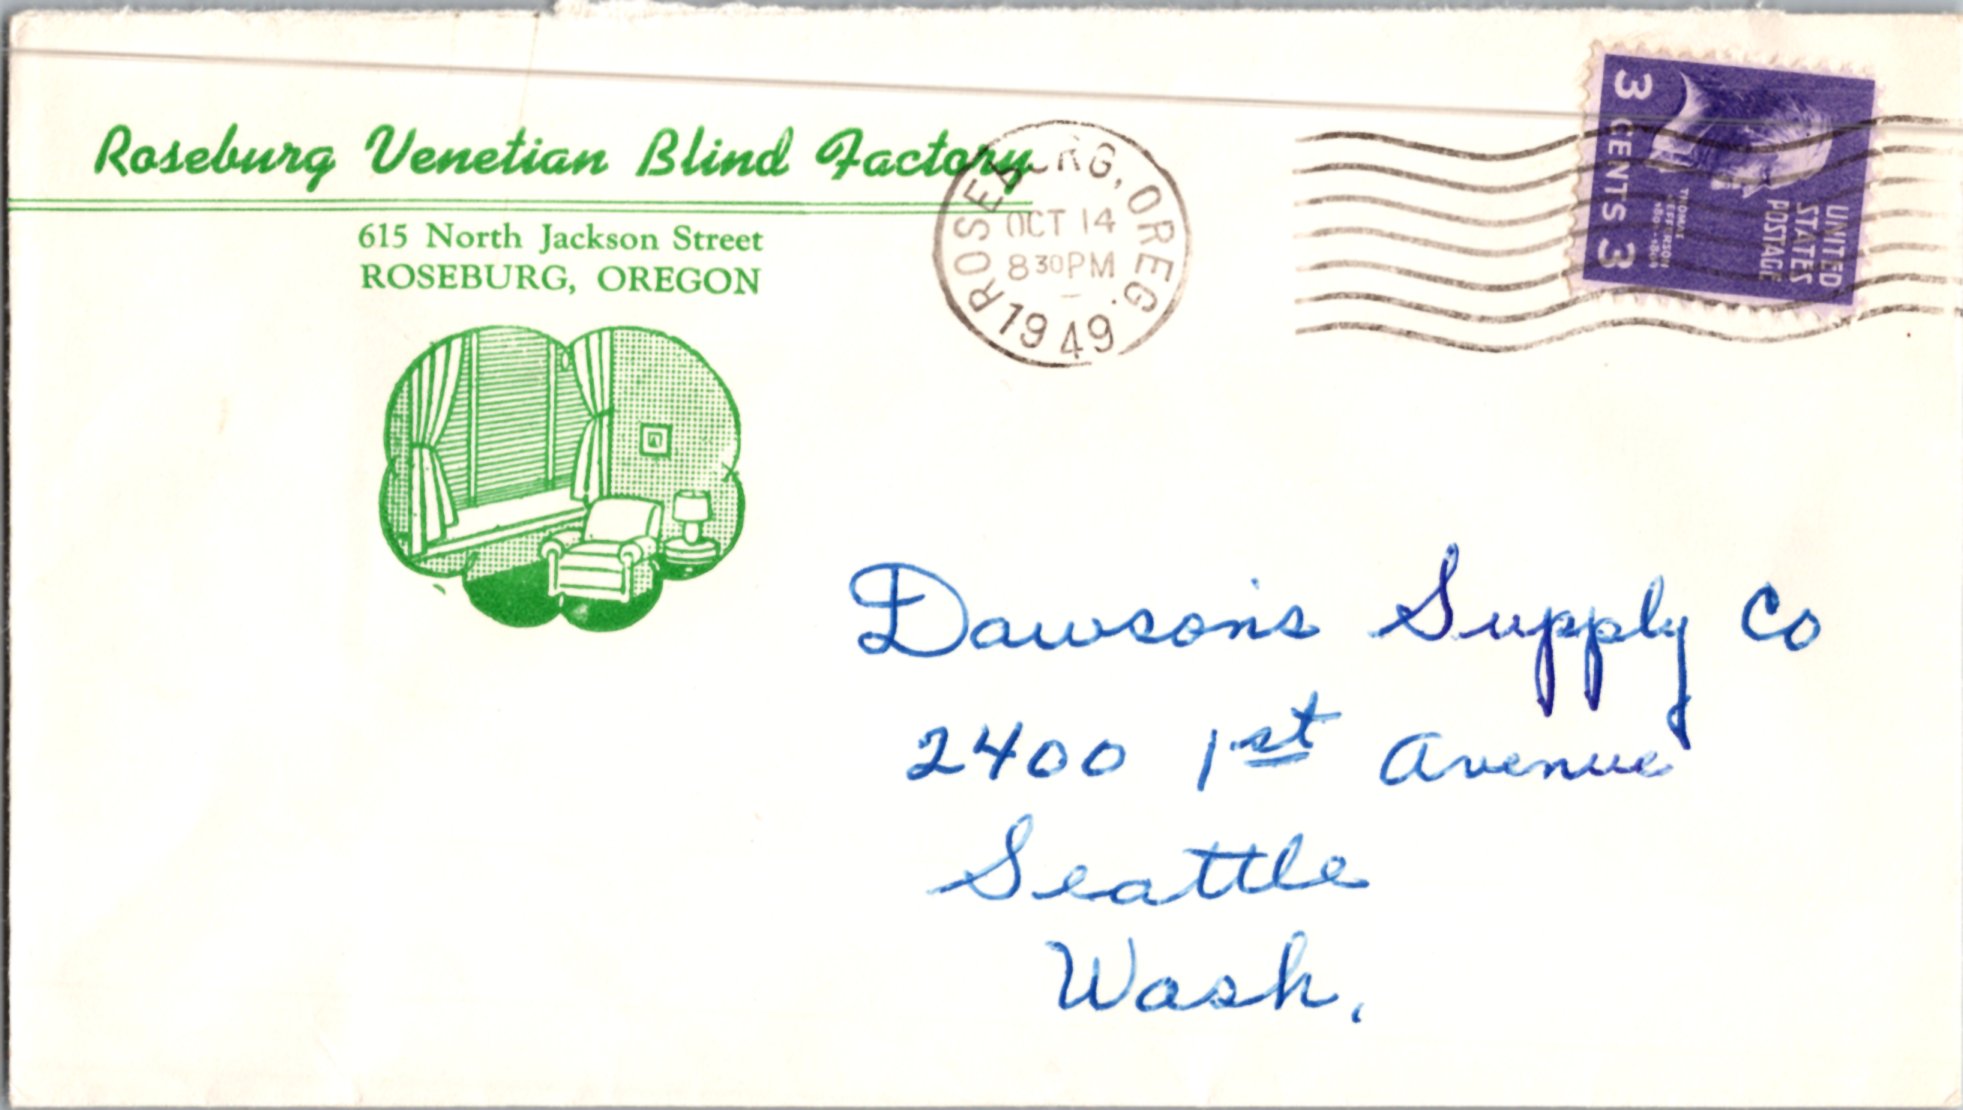 Roseburg Venetian Blind Factory
615 North Jackson Street
ROSEBURG, OREGON
ROSEBURG, OREG.
OCT 14
8 30 PM
1949
3 CENTS 3
THOMAS
JEFFERSON
UNITED
STATES
POSTAGE
Dawson's Supply Co
2400 1st Avenue
Seattle
Wash.